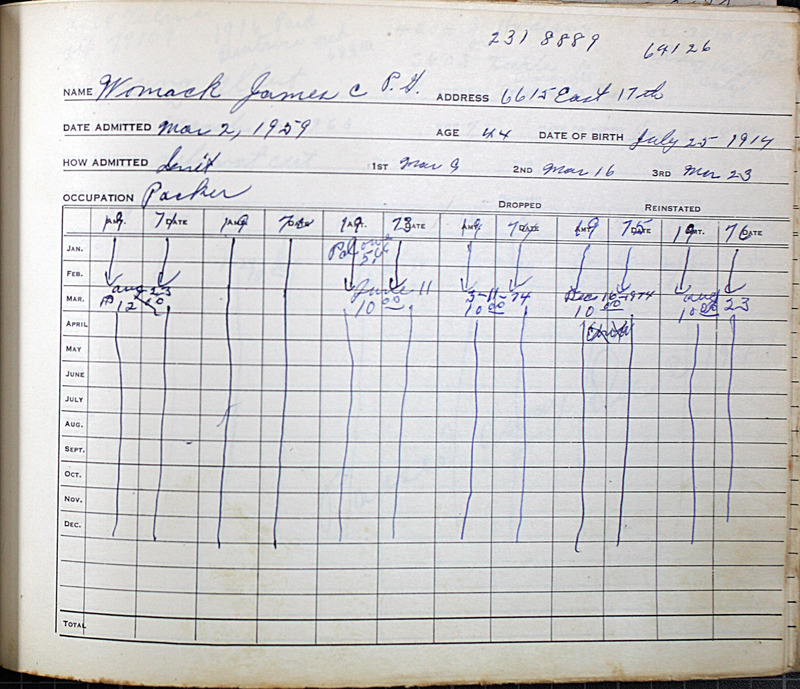 231 8889 64126
NAME Womack James C P.G. ADDRESS 6615 East 17th
DATE ADMITTED Mar 2, 1959 AGE 44 DATE OF BIRTH July 25-1914
HOW ADMITTED 1ST Mar 9 2ND Mar 16 3RD Mar 23
OCCUPATION Packer
DROPPED REINSTATED
19 71 DATE 19 72 19 73 DATE 19 74 DATE 19 75 DATE 19 76 DATE
JAN.
FEB.
MAR. Aug 23 12 00 June 11 10 00 3-11-74 10 00 Dec 16-1974 10 00 Aug 23 10 00
APRIL
MAY
JUNE
JULY
AUG.
SEPT.
OCT.
NOV.
DEC.
TOTAL